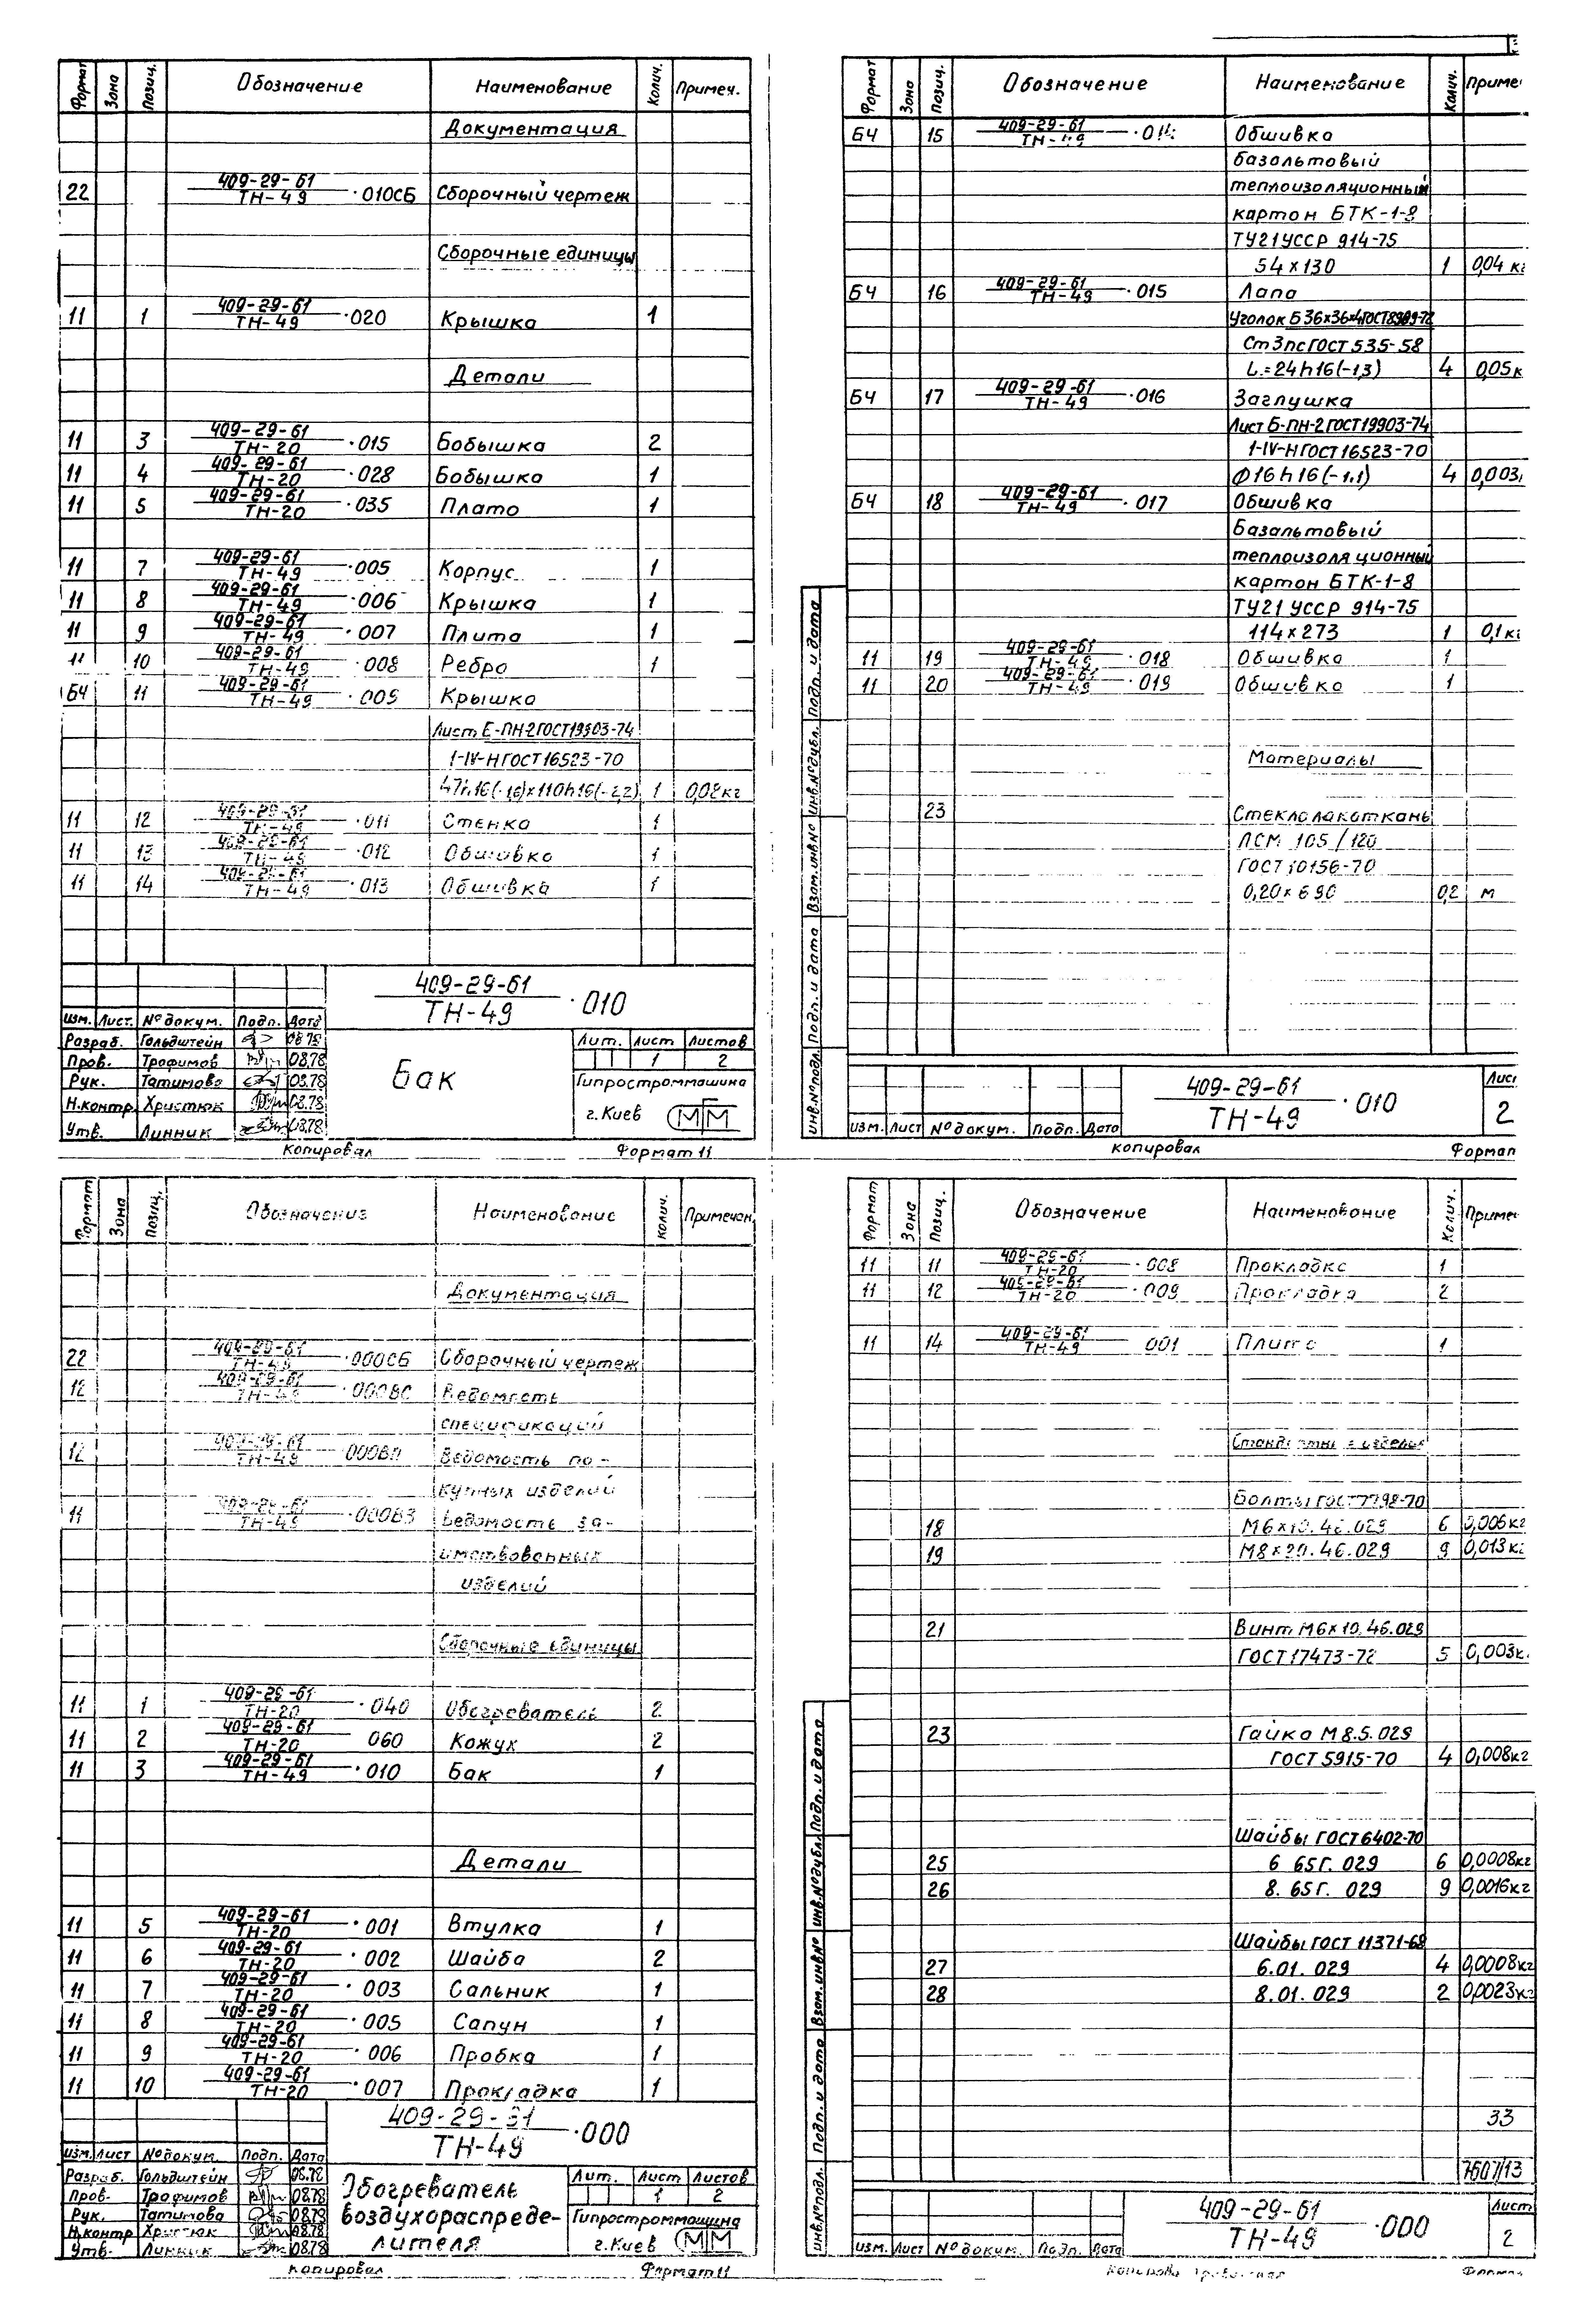 Формат Зона Позиц. Обозначение Наименование Колич. Примеч.
Документация
22 409-29-61/ТН-49 ·010СБ Сборочный чертеж
Сборочные единицы
11 1 409-29-61/ТН-49 ·020 Крышка 1
Детали
11 3 409-29-61/ТН-20 ·015 Бобышка 2
11 4 409-29-61/ТН-20 ·028 Бобышка 1
11 5 409-29-61/ТН-20 ·035 Плато 1
11 7 409-29-61/ТН-49 ·005 Корпус 1
11 8 409-29-61/ТН-49 ·006 Крышка 1
11 9 409-29-61/ТН-49 ·007 Плита 1
11 10 409-29-61/ТН-49 ·008 Ребро 1
БЧ 11 409-29-61/ТН-49 ·009 Крышка
Лист Б-ПН-2 ГОСТ19903-74
1-IV-Н ГОСТ16523-70
47h16(-1,6)×110h16(-2,2) 1 0,08кг
11 12 409-29-61/ТН-49 ·011 Стенка 1
11 13 409-29-61/ТН-49 ·012 Обшивка 1
11 14 409-29-61/ТН-49 ·013 Обшивка 1
409-29-61/ТН-49 ·010
Изм. Лист. № докум. Подп. Дата
Разраб. Гольдштейн 08.78
Пров. Трофимов 08.78
Рук. Татимова 08.78
Н.контр. Христюк 08.78
Утв. Линник 08.78
Бак
Лит. Лист Листов
1 2
Гипростроммашина
г. Киев
Копировал Формат 11
Формат Зона Позиц. Обозначение Наименование Колич. Примеч
БЧ 15 409-29-61/ТН-49 ·014 Обшивка
базальтовый
теплоизоляционный
картон БТК-1-8
ТУ21 УССР 914-75
54×130 1 0,04 кг
БЧ 16 409-29-61/ТН-49 ·015 Лапа
Уголок Б36×36×4 ГОСТ8509-72
Ст3пс ГОСТ 535-58
L=24h16(-1,3) 4 0,05к
БЧ 17 409-29-61/ТН-49 ·016 Заглушка
Лист Б-ПН-2 ГОСТ19903-74
1-IV-Н ГОСТ16523-70
Ф16h16(-1,1) 4 0,003
БЧ 18 409-29-61/ТН-49 ·017 Обшивка
Базальтовый
теплоизоляционный
картон БТК-1-8
ТУ21 УССР 914-75
114×273 1 0,1кг
11 19 409-29-61/ТН-49 ·018 Обшивка 1
11 20 409-29-61/ТН-49 ·019 Обшивка 1
Материалы
23 Стеклолакоткань
ЛСМ 105/120
ГОСТ 10156-70
0,20×690 0,2 м
Инв.№подл. Подп. и дата Взам.инв.№ Инв.№дубл. Подп. и дата
Изм. Лист № докум. Подп. Дата
409-29-61/ТН-49 ·010
Лист
2
Копировал Формат
Формат Зона Позиц. Обозначение Наименование Колич. Примечан.
Документация
22 409-29-61/ТН-49 ·000СБ Сборочный чертеж
12 409-29-61/ТН-49 ·000ВС Ведомость
спецификаций
12 409-29-61/ТН-49 ·000ВП Ведомость по-
купных изделий
11 409-29-61/ТН-49 ·000ВЗ Ведомость за-
имствованных
изделий
Сборочные единицы
11 1 409-29-61/ТН-20 ·040 Обогреватель 2
11 2 409-29-61/ТН-20 060 Кожух 2
11 3 409-29-61/ТН-49 ·010 Бак 1
Детали
11 5 409-29-61/ТН-20 ·001 Втулка 1
11 6 409-29-61/ТН-20 ·002 Шайба 2
11 7 409-29-61/ТН-20 ·003 Сальник 1
11 8 409-29-61/ТН-20 ·005 Сапун 1
11 9 409-29-61/ТН-20 ·006 Пробка 1
11 10 409-29-61/ТН-20 ·007 Прокладка 1
409-29-61/ТН-49 ·000
Изм. Лист № докум. Подп. Дата
Разраб. Гольдштейн 08.78
Пров. Трофимов 08.78
Рук. Татимова 08.78
Н.контр Христюк 08.78
Утв. Линник 08.78
Обогреватель
воздухораспреде-
лителя
Лит. Лист Листов
1 2
Гипростроммашина
г. Киев
Копировал Формат 11
Формат Зона Позиц. Обозначение Наименование Колич. Примеч
11 11 409-29-61/ТН-20 ·008 Прокладка 1
11 12 409-29-61/ТН-20 ·009 Прокладка 2
11 14 409-29-61/ТН-49 001 Плита 1
Стандартные изделия
Болты ГОСТ7798-70
18 М6×10.46.029 6 0,006кг
19 М8×20.46.029 9 0,013кг
21 Винт М6×10.46.029
ГОСТ17473-72 5 0,003к
23 Гайка М8.5.029
ГОСТ 5915-70 4 0,008кг
Шайбы ГОСТ6402-70
25 6 65Г. 029 6 0,0008кг
26 8. 65Г. 029 9 0,0016кг
Шайбы ГОСТ 11371-68
27 6.01. 029 4 0,0008кг
28 8.01. 029 2 0,0023кг
33
7507/13
Инв.№подл. Подп. и дата Взам.инв.№ Инв.№дубл. Подп. и дата
Изм. Лист № докум. Подп. Дата
409-29-61/ТН-49 ·000
Лист
2